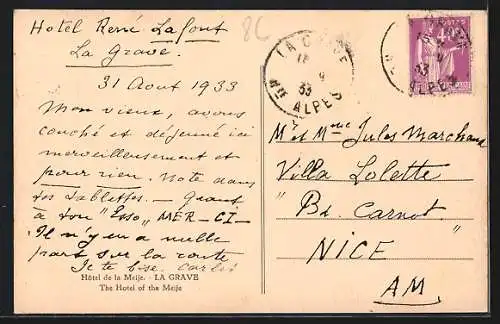 Hotel René Lafont
La Grave
8C
31 Aout 1933
Mon vieux, avons
couché et déjeuné ici
merveilleusement et
pour rien. Note dans
tes tablettes. — Quant
à ton "Esso" MER-CI-
Il n'y en a nulle
part sur la route
Je te bise. Carlos
Hôtel de la Meije. - LA GRAVE
The Hotel of the Meije
LA GRAVE
9
33
ALPES
POSTES
33
ALPES
Mr et Mme Jules Marchand
Villa Lolette
"Bd. Carnot"
NICE
AM